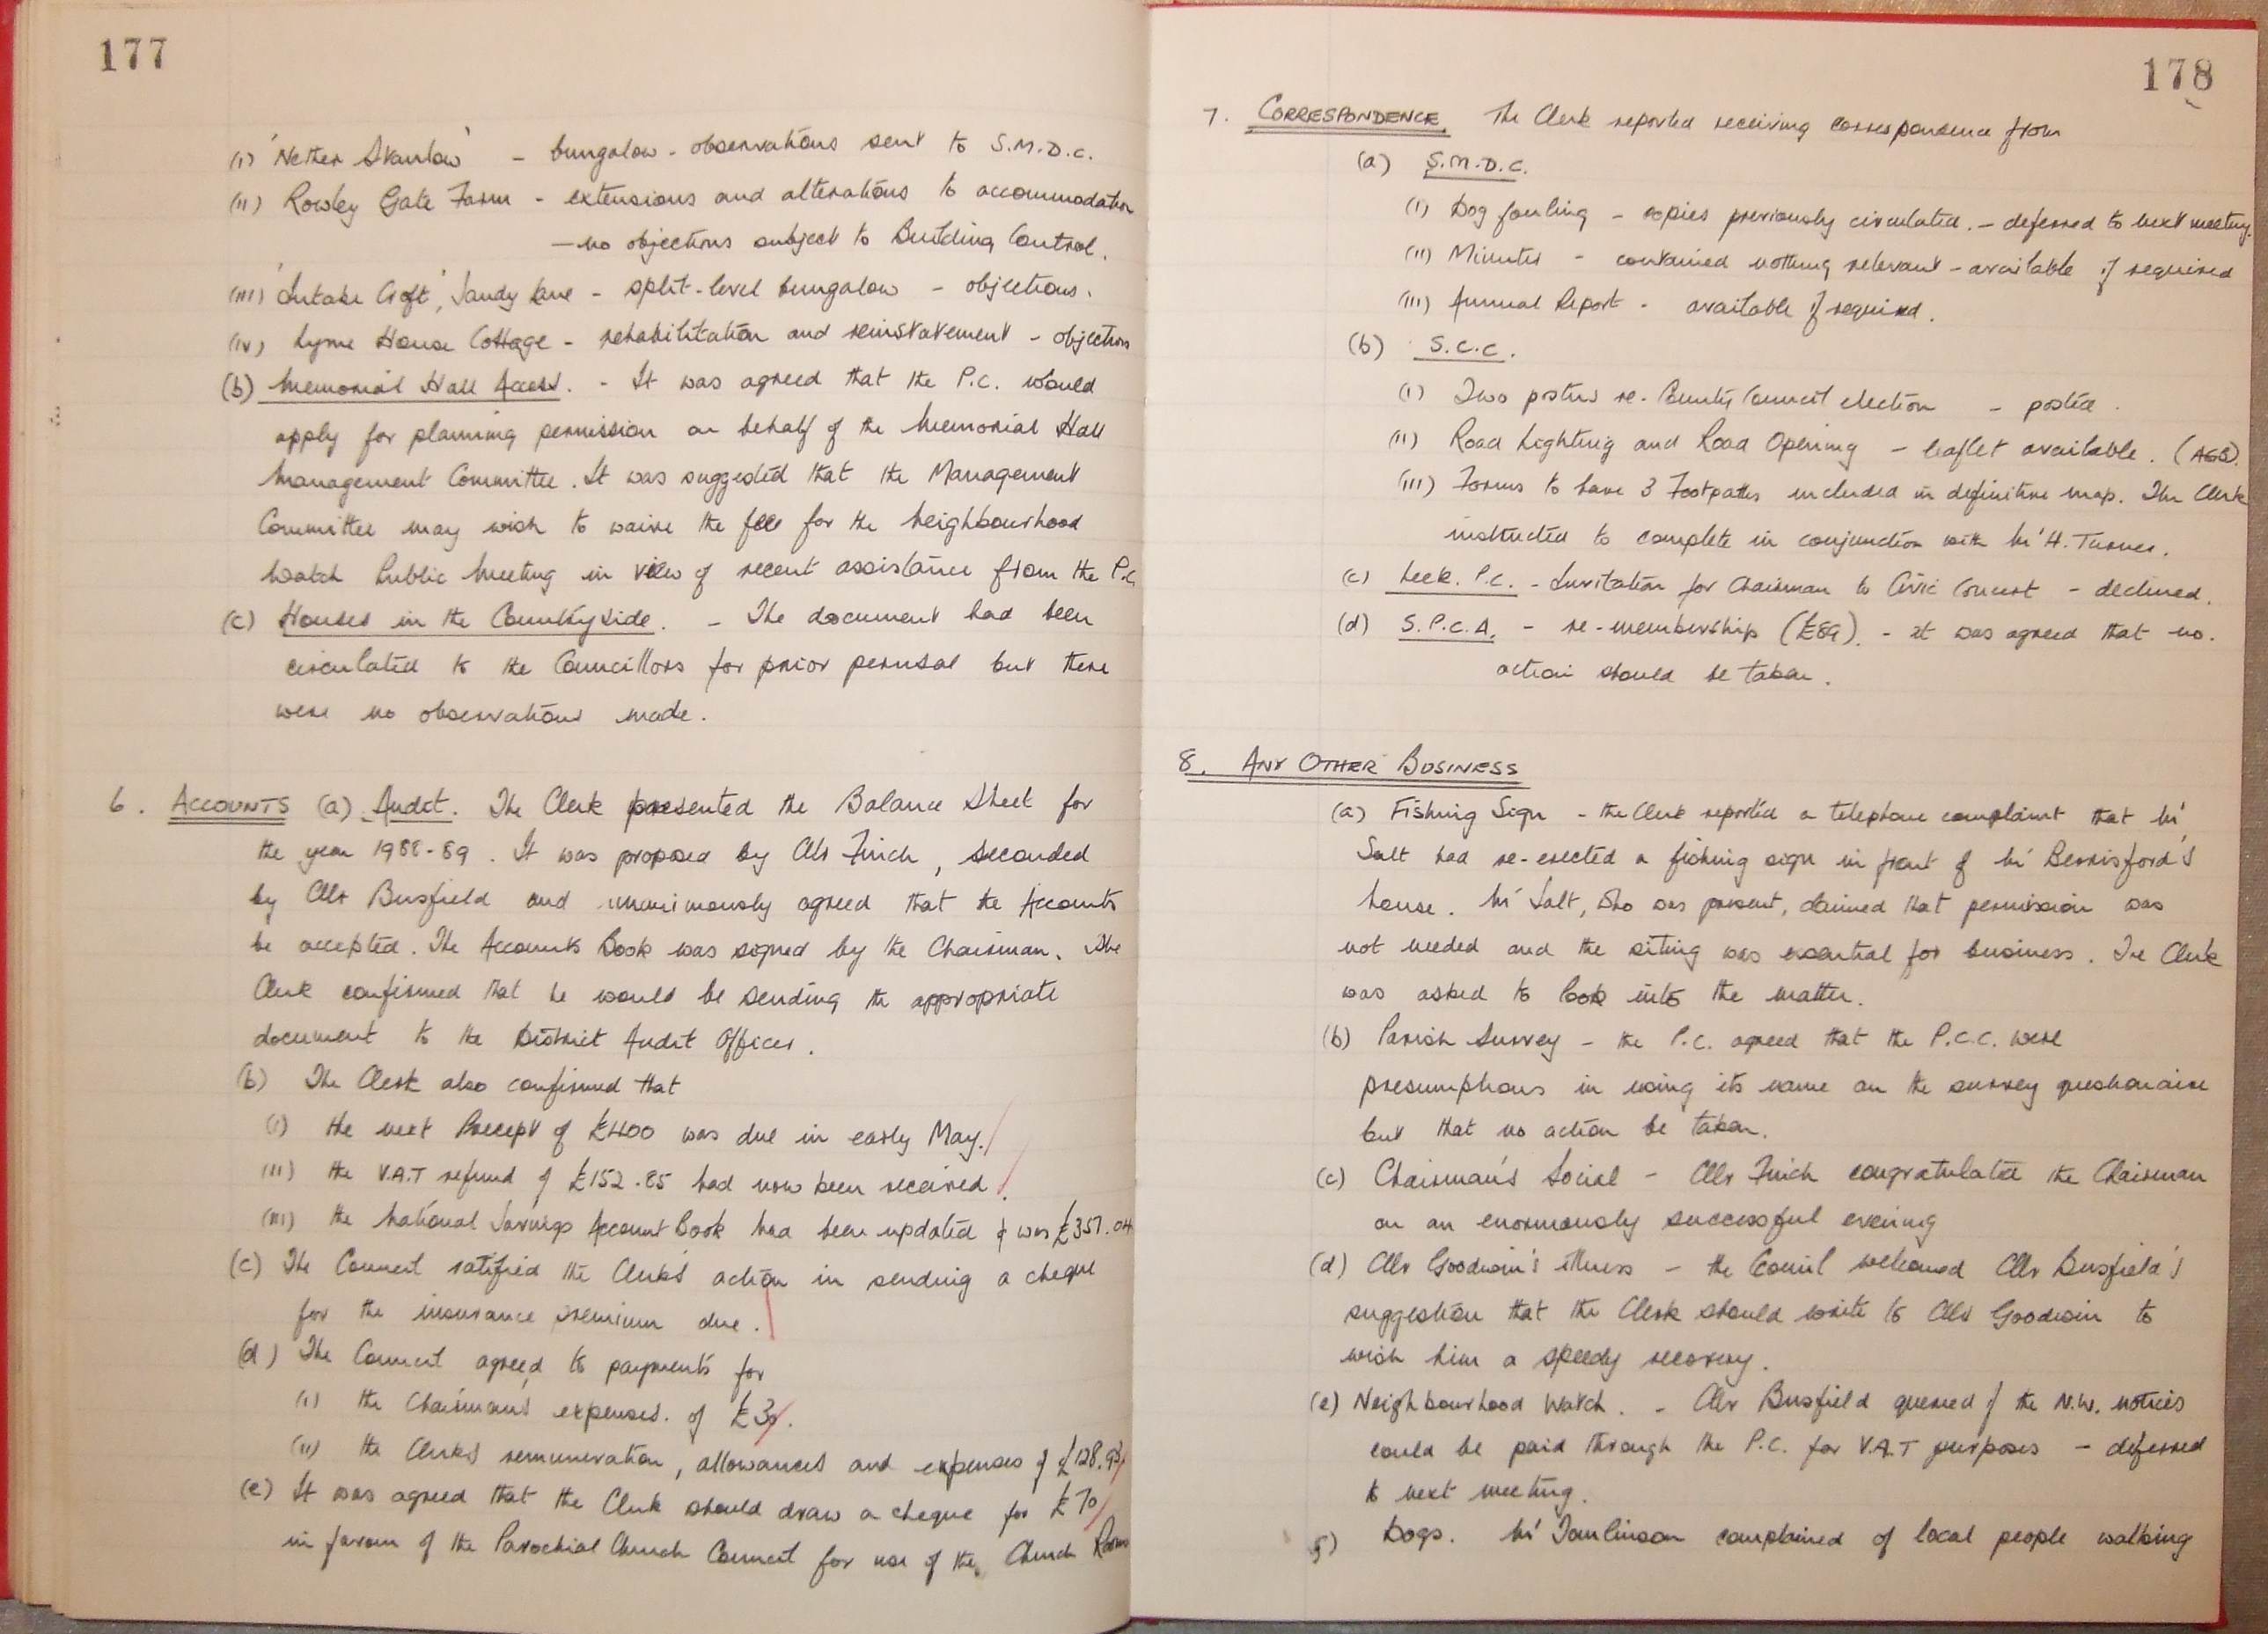 177
(i) 'Nether Stanlow' - bungalow - observations sent to S.M.D.C.
(ii) Rowley Gate Farm - extensions and alterations to accommodation
- no objections subject to Building Control.
(iii) 'Intake Croft', Sandy Lane - split-level bungalow - objections.
(iv) Lyme House Cottage - rehabilitation and reinstatement - objections
(b) Memorial Hall Access. - It was agreed that the P.C. would
apply for planning permission on behalf of the Memorial Hall
Management Committee. It was suggested that the Management
Committee may wish to waive the fee for the Neighbourhood
Watch Public Meeting in view of recent assistance from the P.C.
(c) Houses in the Countryside. - The document had been
circulated to the Councillors for prior perusal but there
were no observations made.
6. ACCOUNTS (a) Audit. The Clerk presented the Balance Sheet for
the year 1988-89. It was proposed by Cllr Finch, seconded
by Cllr Busfield and unanimously agreed that the Accounts
be accepted. The Accounts Book was signed by the Chairman. The
Clerk confirmed that he would be sending the appropriate
document to the District Audit Officer.
(b) The Clerk also confirmed that
(i) the next Precept of £400 was due in early May.
(ii) the V.A.T refund of £152.85 had now been received.
(iii) the National Savings Account Book had been updated & was £357.04
(c) The Council ratified the Clerk's action in sending a cheque
for the insurance premium due.
(d) The Council agreed to payments for
(i) the Chairman's expenses. of £30.
(ii) the Clerk's remuneration, allowances and expenses of £128.93
(e) It was agreed that the Clerk should draw a cheque for £70
in favour of the Parochial Church Council for use of the Church Room
178
7. CORRESPONDENCE. The Clerk reported receiving correspondence from
(a) S.M.D.C.
(i) Dog fouling - copies previously circulated. - deferred to next meeting.
(ii) Minutes - contained nothing relevant - available if required
(iii) Annual Report - available if required.
(b) S.C.C.
(i) Two posters re. County Council election - posted.
(ii) Road Lighting and Road Opening - leaflet available. (AGB).
(iii) Forms to have 3 Footpaths included in definitive map. The Clerk
instructed to complete in conjunction with Mr H. Turner.
(c) Leek. P.C. - Invitation for Chairman to Civic Concert - declined.
(d) S.P.C.A. - re-membership (£89). - it was agreed that no.
action should be taken.
8. ANY OTHER BUSINESS
(a) Fishing Sign - the Clerk reported a telephone complaint that Mr
Salt had re-erected a fishing sign in front of Mr Berrisford's
house. Mr Salt, who was present, claimed that permission was
not needed and the siting was essential for business. The Clerk
was asked to look into the matter.
(b) Parish Survey - the P.C. agreed that the P.C.C. were
presumptious in using its name on the survey questionaire
but that no action be taken.
(c) Chairman's Social - Cllr Finch congratulated the Chairman
on an enormously successful evening
(d) Cllr Goodwin's illness - the Council welcomed Cllr Busfield's
suggestion that the Clerk should write to Cllr Goodwin to
wish him a speedy recovery.
(e) Neighbourhood Watch. - Cllr Busfield queried if the N.W. notices
could be paid through the P.C. for V.A.T purposes - deferred
to next meeting.
Dogs. Mr Tomlinson complained of local people walking